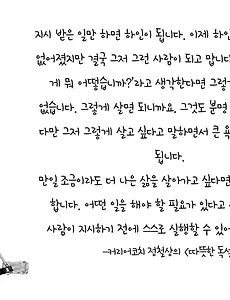 지시 받은 일만 하면 하인이 됩니다. 이제 하인
없어졌지만 결국 그저 그런 사람이 되고 맙니다
게 뭐 어떻습니까?'라고 생각한다면 그렇
없습니다. 그렇게 살면 되니까요. 그것도 분명
다만 그저 그렇게 살고 싶다고 말하면서 큰 욕
됩니다.
만일 조금이라도 더 나은 삶을 살아가고 싶다면
합니다. 어떤 일을 해야 할 필요가 있다고
사람이 지시하기 전에 스스로 실행할 수 있어
-커리어코치 정철상의 <따뜻한 독설